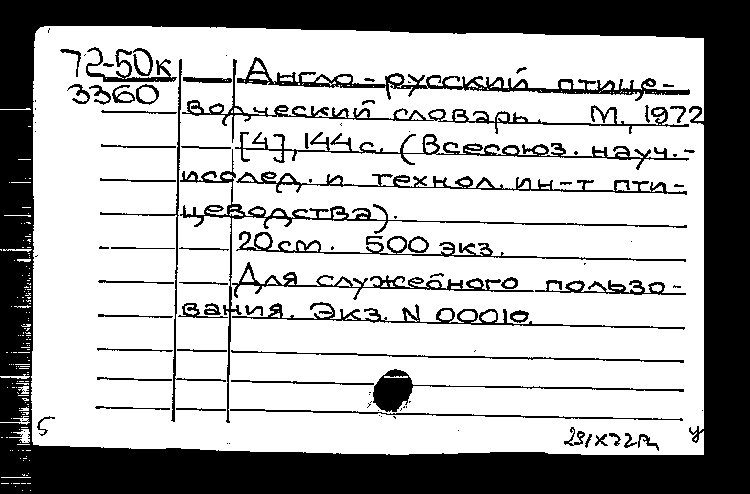 72-50к
3360
Англо-русский птице-
водческий словарь. М., 1972
[4], 144 с. (Всесоюз. науч.-
исслед. и технол. ин-т пти-
цеводства).
20 см. 500 экз.
Для служебного пользо-
вания. Экз. N 00010.
Б
у